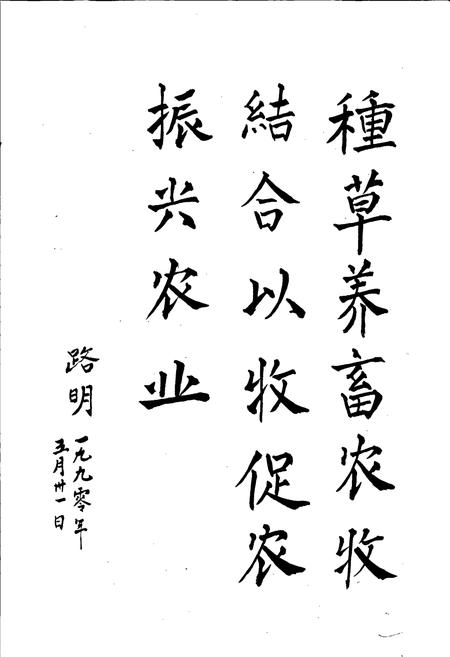 種草养畜农牧
結合以牧促农
振兴农业
路明
一九九零年
五月卅一日